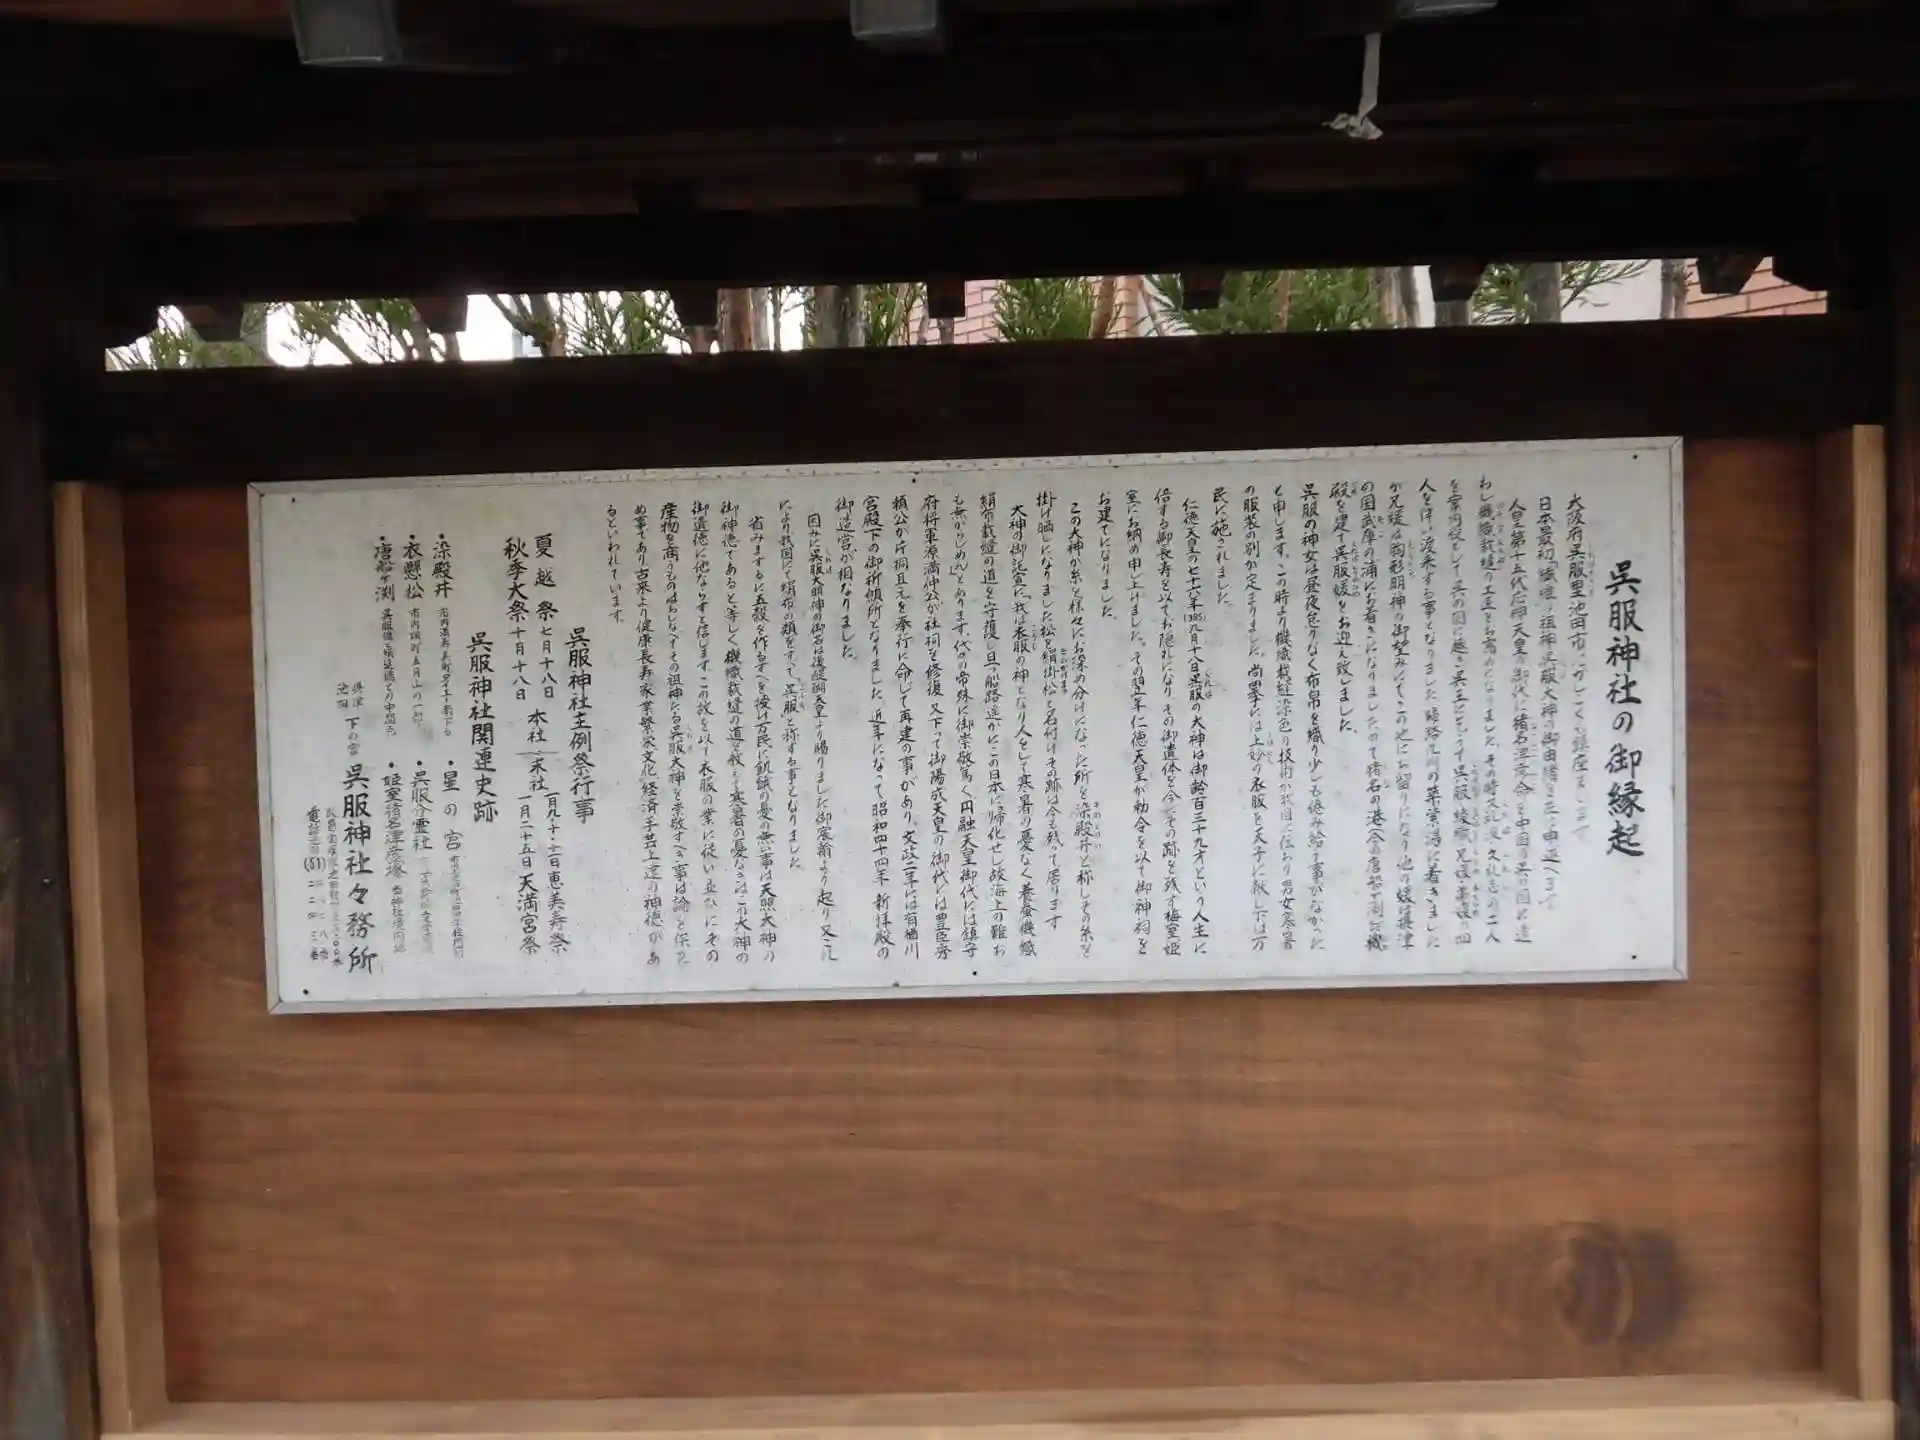 呉服神社の御縁起
大阪府呉服里池田市にかしこくも鎮座まします
日本最初の機織の祖神呉服大神の御由緒を 申述べます
人皇第十五代応神天皇の御代に猪名津彦命を中国の呉の国に遣
わし機織裁縫の工女をお求めになりました。その時 久礼志の二人
を案内役として呉の国に越き呉王にこうて呉服綾織兄媛弟媛の四
人を伴い渡来する事となりました 帰路九州の筑紫潟に着きました
が兄媛は胸形明神の御望みにてこの地にお留りになり他の媛は摂津
の国武庫の浦にお着きになりましたので猪名の港(今の唐船ヶ渕)に機
殿を建て呉服媛をお迎え致しました。
呉服の神女は昼夜怠りなく布帛を織り少しも倦み給う事がなかった
と申します。この時より機織裁縫染色の技術が我国に伝わり男女寒暑
の服装の別が定まりました。尚畢には上妙の衣服を天子に献じ下は万
民に施されました。
仁徳天皇の七十六年(385)九月十八日呉服の大神は御齢百三十九才という人生に
倍する御長寿を以てお隠れになり その御遺体を今にその跡を残す梅室姫
室にお納め申し上げました。その翌年仁徳天皇が勅令を以て御神祠を
お建てになりました。
この大神が糸を様々にお染め分けになった所を染殿井と称しその糸を
掛け晒しになりました松を絹掛松と名付けその跡は今も残って居ります
大神の御託宣に「我は衣服の神となり人をして寒暑の憂なく養蚕機織
絹布裁縫の道を守護し且つ船路遥かにこの日本に帰化せし故海上の難お
も無からしめん」とあります。代々の帝殊に御崇敬篤く円融天皇御代には鎮守
府将軍源満仲公が社祠を修復 又下って御陽成天皇の御代には豊臣秀
頼公が片桐且元を奉行に命じて再建の事があり、文政二年には有栖川
宮殿下の御祈願所となりました。近年になって昭和四十四年新拝殿の
御造営が相なりました。
因みに呉服大明神の御名は後醍醐天皇より賜りました御宸翰より起り又これ
により我国にて絹布の類をすべて「呉服」と称する事となりました。
省みまするに五穀を作るすべを授け万民に飢餓の憂の無い事は天照大神の
御神徳であると等しく機織裁縫の道を教えて寒暑の憂なきはこの大神の
御遺徳に他ならずと信じます。この故を以て衣服の業に従い並びにその
産物を商うものはおしなべてその祖神たる呉服大神を崇敬すべき事は論を俟た
ぬ事であり古来より健康長寿家業繁栄文化経済手芸上達の神徳があ
るといわれています。
呉服神社主例祭行事
夏越祭 七月十八日 本社 末社 一月九・十・十一日 恵美寿祭
秋季大祭 十月十八日 一月二十五日 天満宮祭
呉服神社関連史跡
・染殿井 市内満寿美町
・星の宮
・衣懸松 市内 五月山の一部
・呉服分霊社
・唐船ヶ渕 呉服橋と絹延橋との中間点
・姫室猪名津彦塚
摂津 池田 下の宮 呉服神社々務所